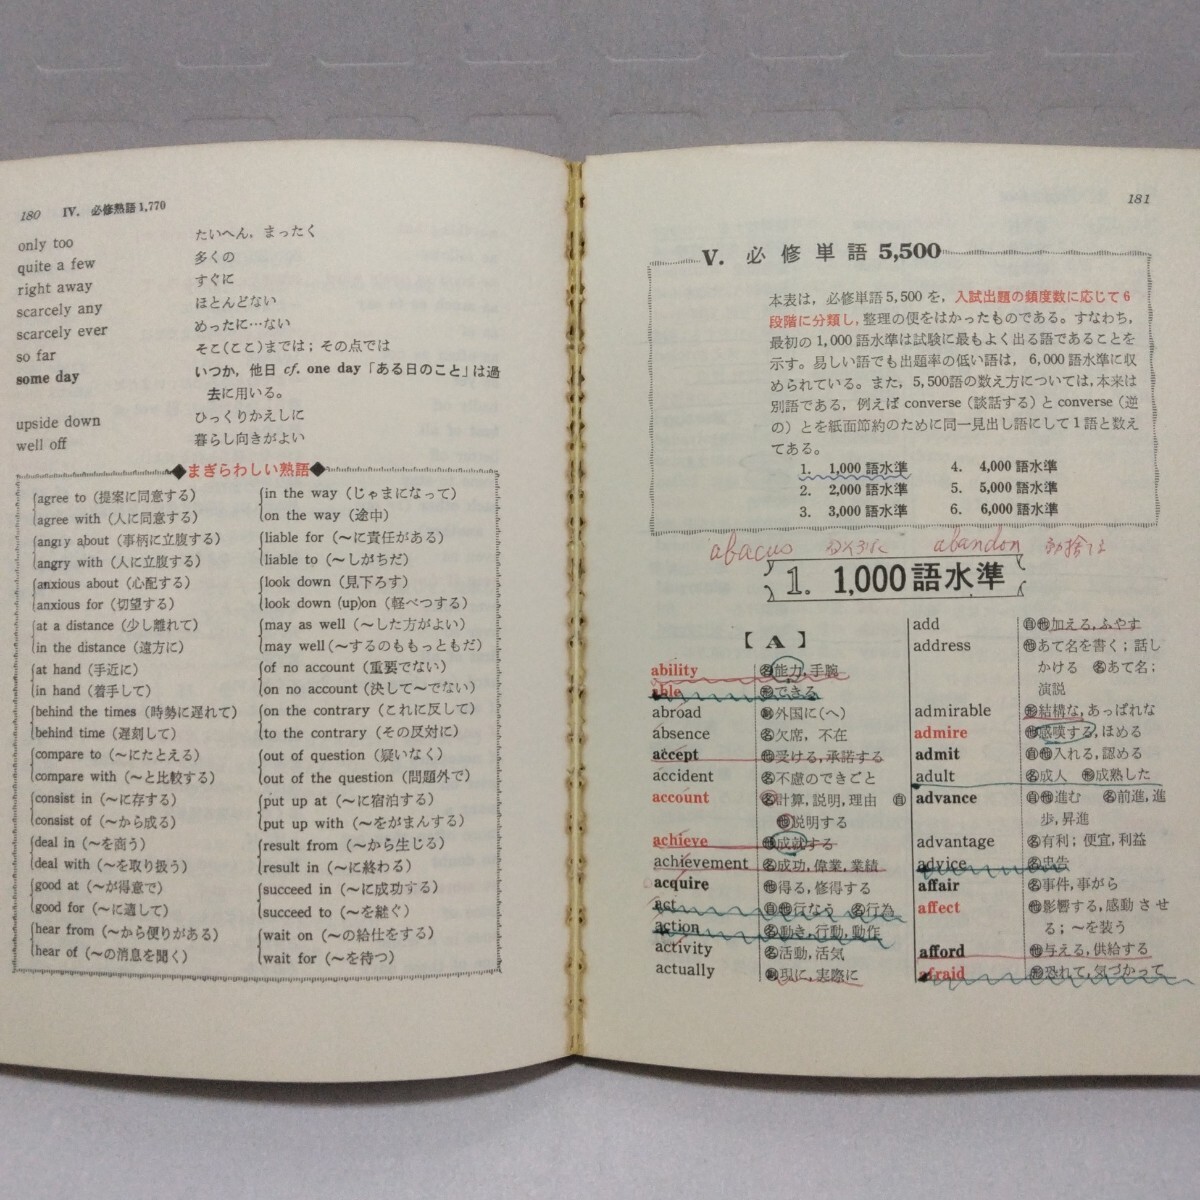 180 IV. 必修熟語1,770
only too たいへん, まったく
quite a few 多くの
right away すぐに
scarcely any ほとんどない
scarcely ever めったに…ない
so far そこ(ここ)までは; その点では
some day いつか, 他日 cf. one day「ある日のこと」は過
去に用いる。
upside down ひっくりかえしに
well off 暮らし向きがよい
◆まぎらわしい熟語◆
agree to (提案に同意する)
agree with (人に同意する)
angry about (事柄に立腹する)
angry with (人に立腹する)
anxious about (心配する)
anxious for (切望する)
at a distance (少し離れて)
in the distance (遠方に)
at hand (手近に)
in hand (着手して)
behind the times (時勢に遅れて)
behind time (遅刻して)
compare to (〜にたとえる)
compare with (〜と比較する)
consist in (〜に存する)
consist of (〜から成る)
deal in (〜を商う)
deal with (〜を取り扱う)
good at (〜が得意で)
good for (〜に適して)
hear from (〜から便りがある)
hear of (〜の消息を聞く)
in the way (じゃまになって)
on the way (途中)
liable for (〜に責任がある)
liable to (〜しがちだ)
look down (見下ろす)
look down (up)on (軽べつする)
may as well (〜した方がよい)
may well (〜するのももっともだ)
of no account (重要でない)
on no account (決して〜でない)
on the contrary (これに反して)
to the contrary (その反対に)
out of question (疑いなく)
out of the question (問題外で)
put up at (〜に宿泊する)
put up with (〜をがまんする)
result from (〜から生じる)
result in (〜に終わる)
succeed in (〜に成功する)
succeed to (〜を継ぐ)
wait on (〜の給仕をする)
wait for (〜を待つ)
181
V. 必修単語 5,500
本表は, 必修単語5,500を, 入試出題の頻度数に応じて6
段階に分類し, 整理の便をはかったものである。すなわち,
最初の1,000語水準は試験に最もよく出る語であることを
示す。易しい語でも出題率の低い語は, 6,000語水準に収
められている。また, 5,500語の数え方については, 本来は
別語である, 例えば converse (談話する) と converse (逆
の) とを紙面節約のために同一見出し語にして1語と数え
てある。
1. 1,000語水準
2. 2,000語水準
3. 3,000語水準
4. 4,000語水準
5. 5,000語水準
6. 6,000語水準
abacus abandon
1. 1,000語水準
【A】
ability 名能力, 手腕
able 形できる
abroad 副外国に(へ)
absence 名欠席, 不在
accept 他受ける, 承諾する
accident 名不慮のできごと
account 名計算, 説明, 理由 自
他説明する
achieve 他成就する
achievement 名成功, 偉業, 業績
acquire 他得る, 修得する
act 自他行なう 名行為
action 名動き, 行動, 動作
activity 名活動, 活気
actually 副現に, 実際に
add 自他加える, ふやす
address 他あて名を書く; 話し
かける 名あて名;
演説
admirable 形結構な, あっぱれな
admire 他感嘆する, ほめる
admit 自他入れる, 認める
adult 名成人 形成熟した
advance 自他進む 名前進, 進
歩, 昇進
advantage 名有利; 便宜, 利益
advice 名忠告
affair 名事件, 事がら
affect 他影響する, 感動させ
る; 〜を装う
afford 他与える, 供給する
afraid 形恐れて, 気づかって